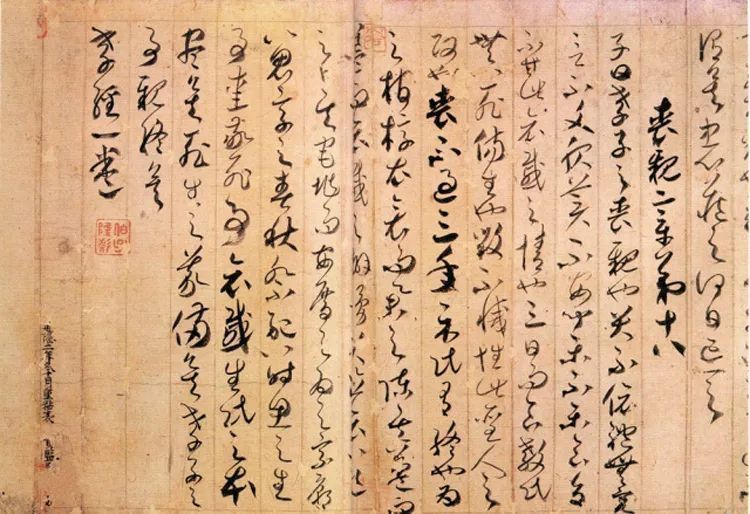 謂矣中心藏之何日忘之
喪親章第十八
子曰孝子之喪親也哭不偯禮無容
言不文服美不安聞樂不樂食旨
不甘此哀慼之情也三日而食教民
無以死傷生也毀不滅性此聖人之
政也喪不過三年示民有終也為
之棺椁衣衾而舉之陳其簠
簋而哀慼之擗踊哭泣哀以送
之卜其宅兆而安厝之為之宗廟
以鬼享之春秋祭祀以時思之生
事愛敬死事哀慼生民之本
盡矣死生之義備矣孝子之
事親終矣
孝經一卷
建隆二年冬十月重粘表